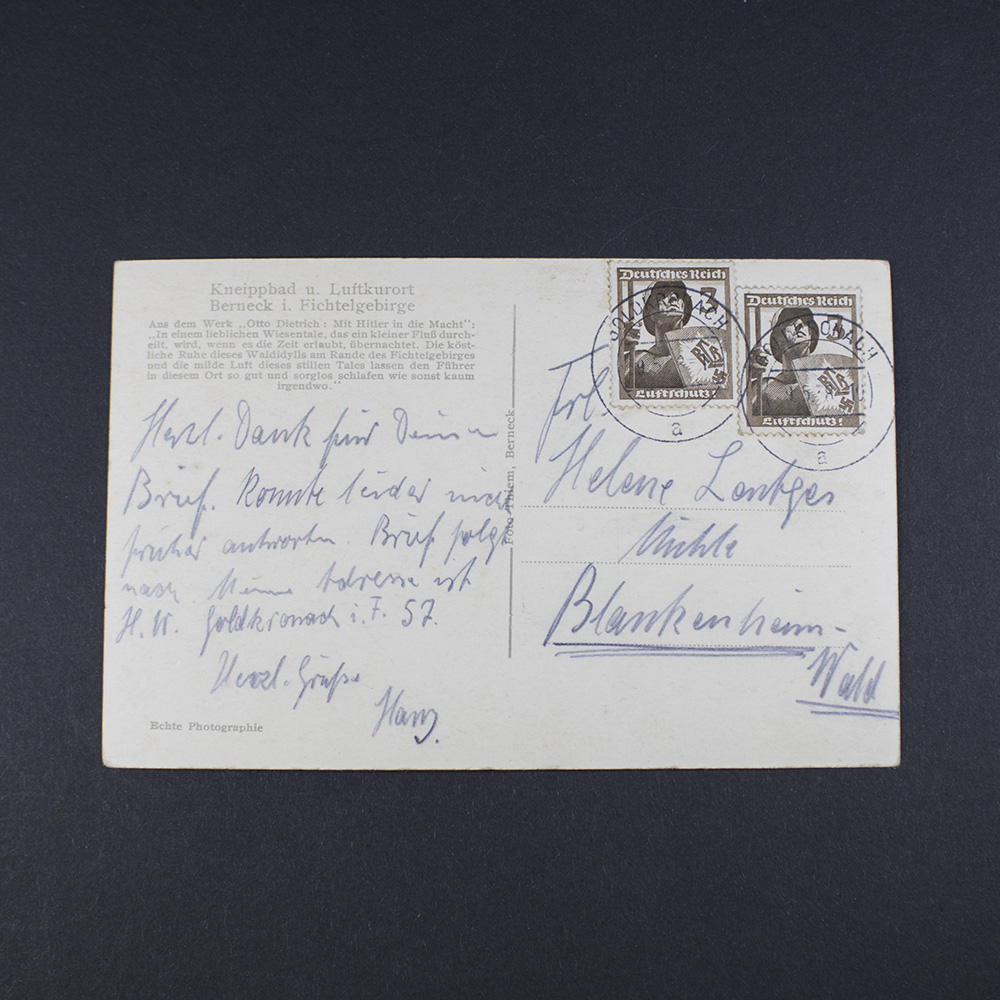 Kneippbad u. Luftkurort
Berneck i. Fichtelgebirge
Aus dem Werk „Otto Dietrich: Mit Hitler in die Macht":
„In einem lieblichen Wiesentale, das ein kleiner Fluß durch-
eilt, wird, wenn es die Zeit erlaubt, übernachtet. Die köst-
liche Ruhe dieses Waldidylls am Rande des Fichtelgebirges
und die milde Luft dieses stillen Tales lassen den Führer
in diesem Ort so gut und sorglos schlafen wie sonst kaum
irgendwo."
Herzl. Dank für Deinen
Brief. Konnte leider nicht
früher antworten. Brief folgt
nach Meine Adresse ist
H. W. Goldkronach i. F. 57.
Herzl. Grüße
Hans.
Echte Photographie
Foto Thiem, Berneck
Deutsches Reich
3
Luftschutz!
Deutsches Reich
Luftschutz!
GOLDKRONACH
a
a
Frl.
Helene Lentges
Mühle
Blankenheim-
Wald